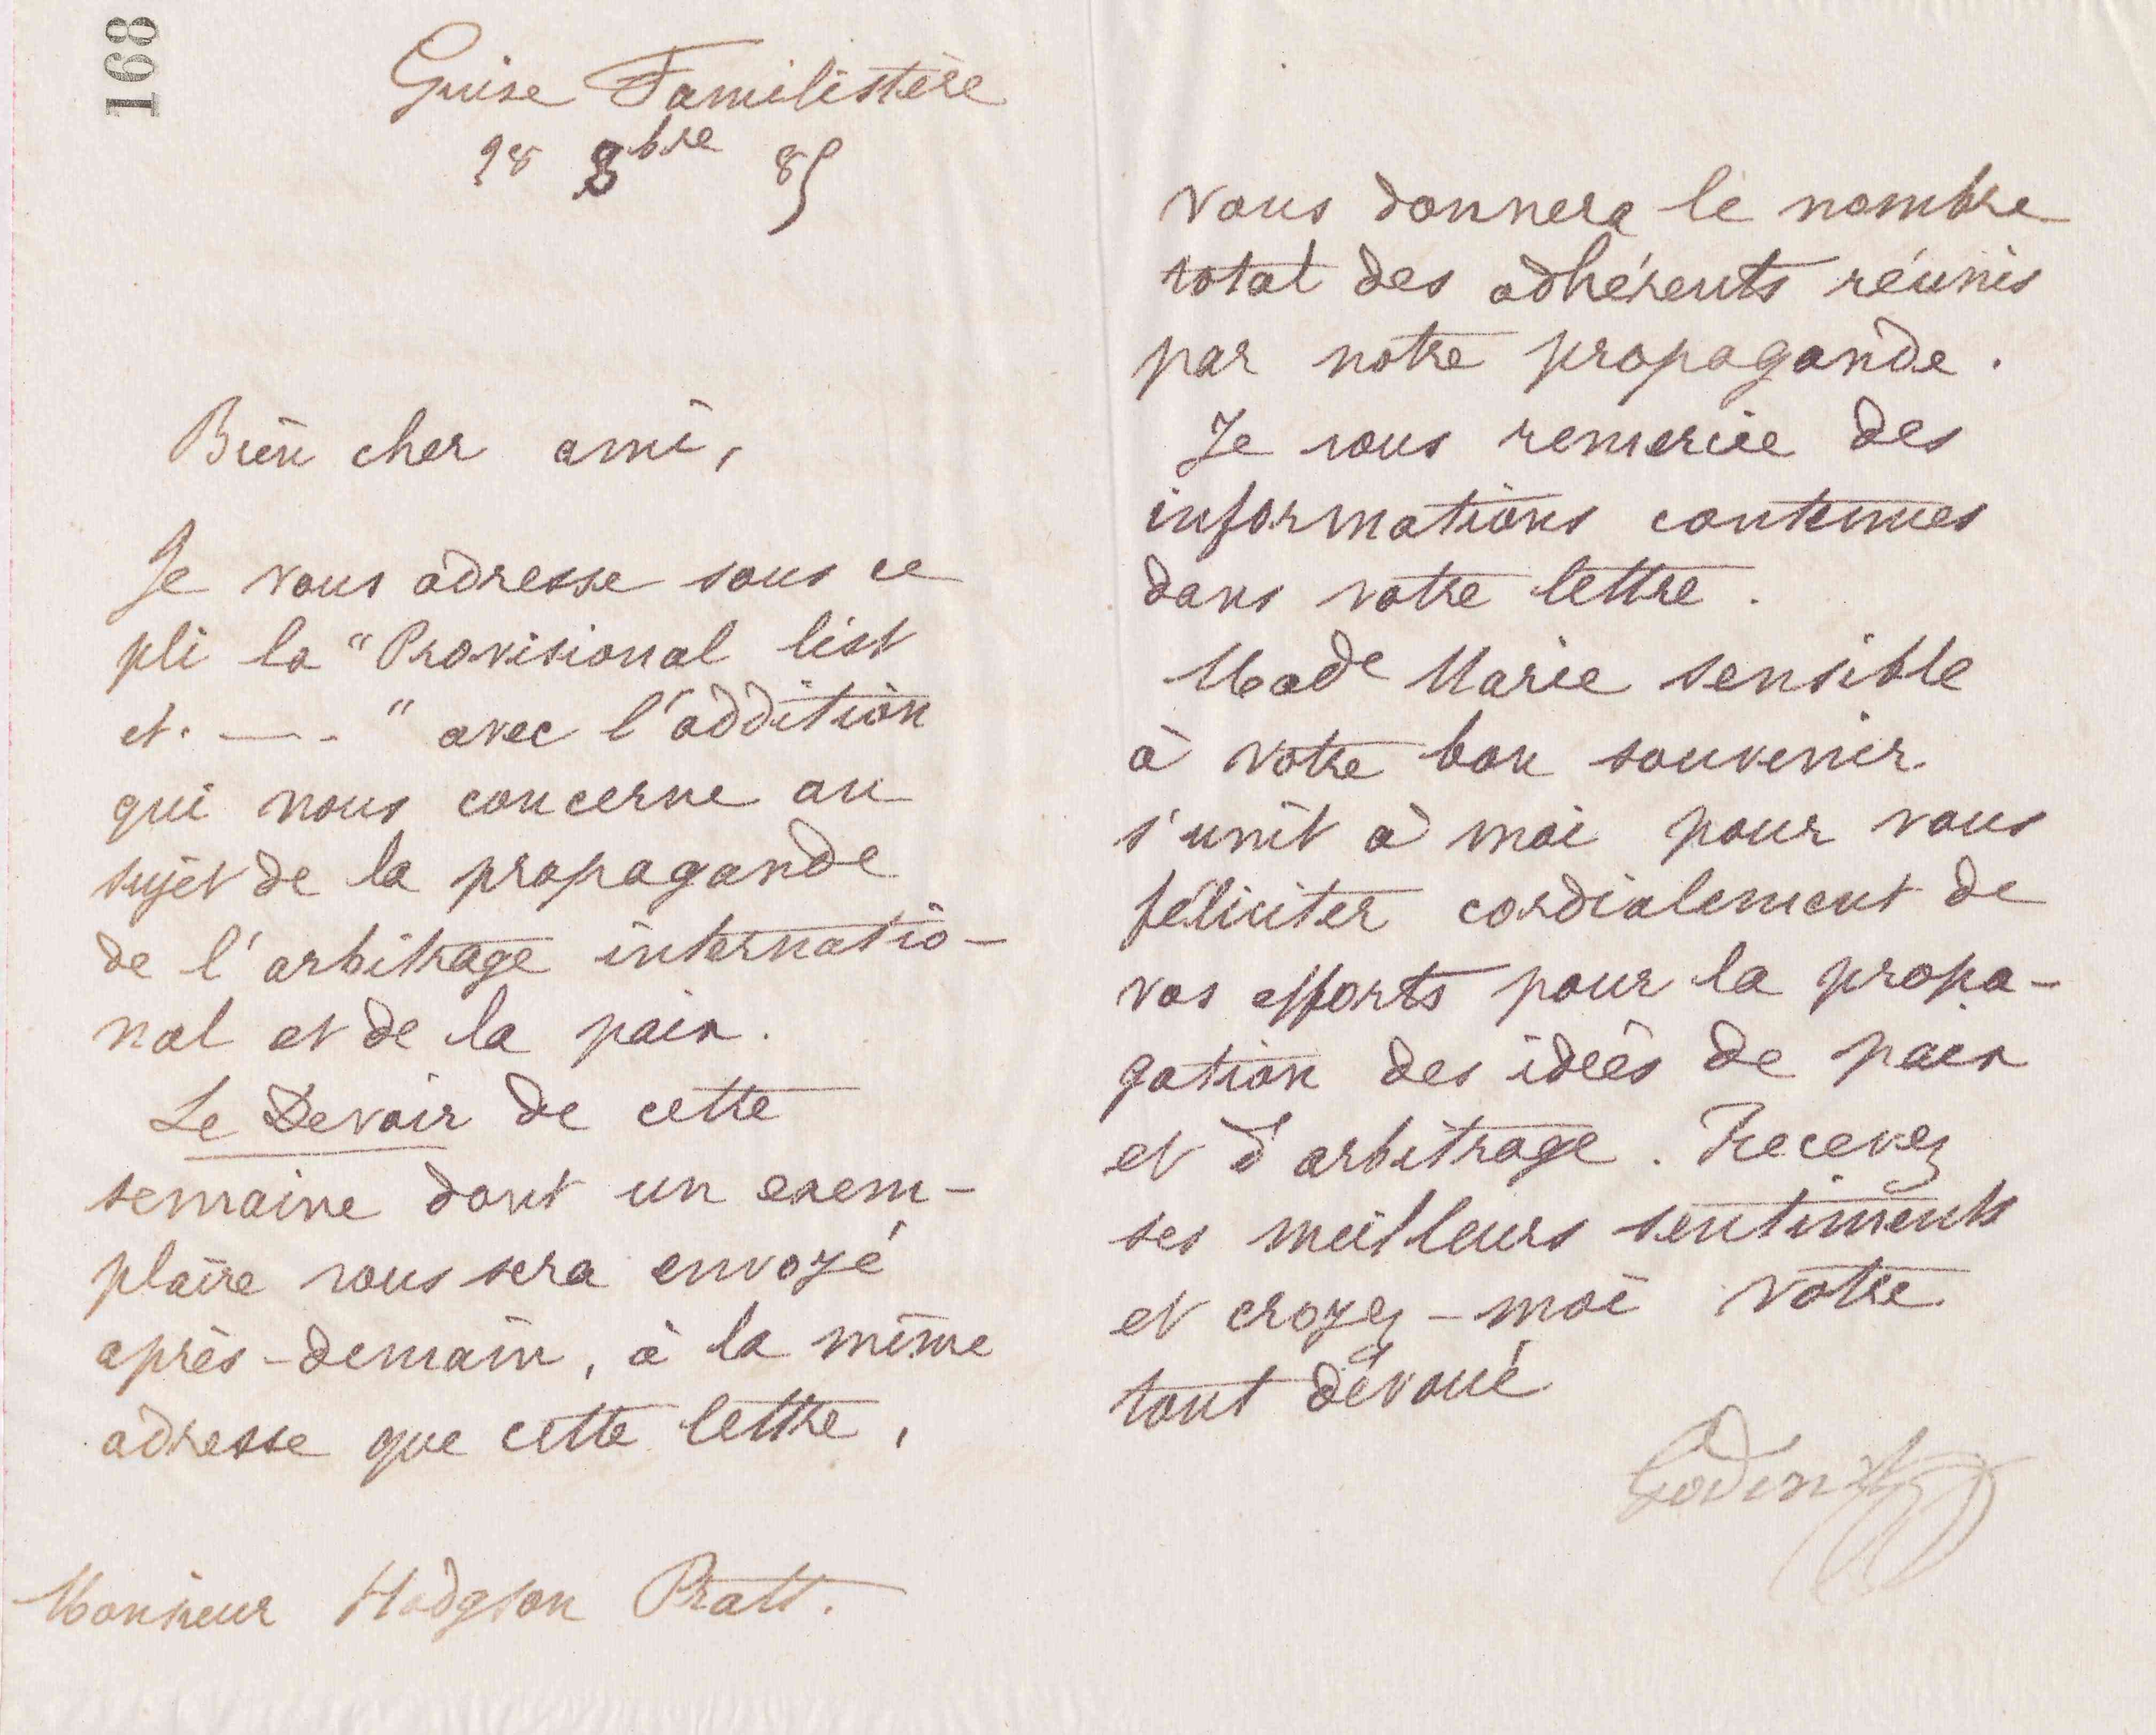 168
Guise Familistère
28 8bre 85
Bien cher ami,
Je vous adresse sous ce
pli la "Provisional list
et. — - " avec l'addition
qui nous concerne au
sujet de la propagande
de l'arbitrage internatio-
nal et de la paix.
Le Devoir de cette
semaine dont un exem-
plaire vous sera envoyé
après-demain, à la même
adresse que cette lettre,
Monsieur Hodgson Pratt.
vous donnera le nombre
total des adhérents réunis
par notre propagande.
Je vous remercie des
informations contenues
dans votre lettre.
Made Marie sensible
à votre bon souvenir
s'unit à moi pour vous
féliciter cordialement de
vos efforts pour la propa-
gation des idées de paix
et d'arbitrage. Recevez
ses meilleurs sentiments
et croyez-moi votre
tout dévoué
Godin